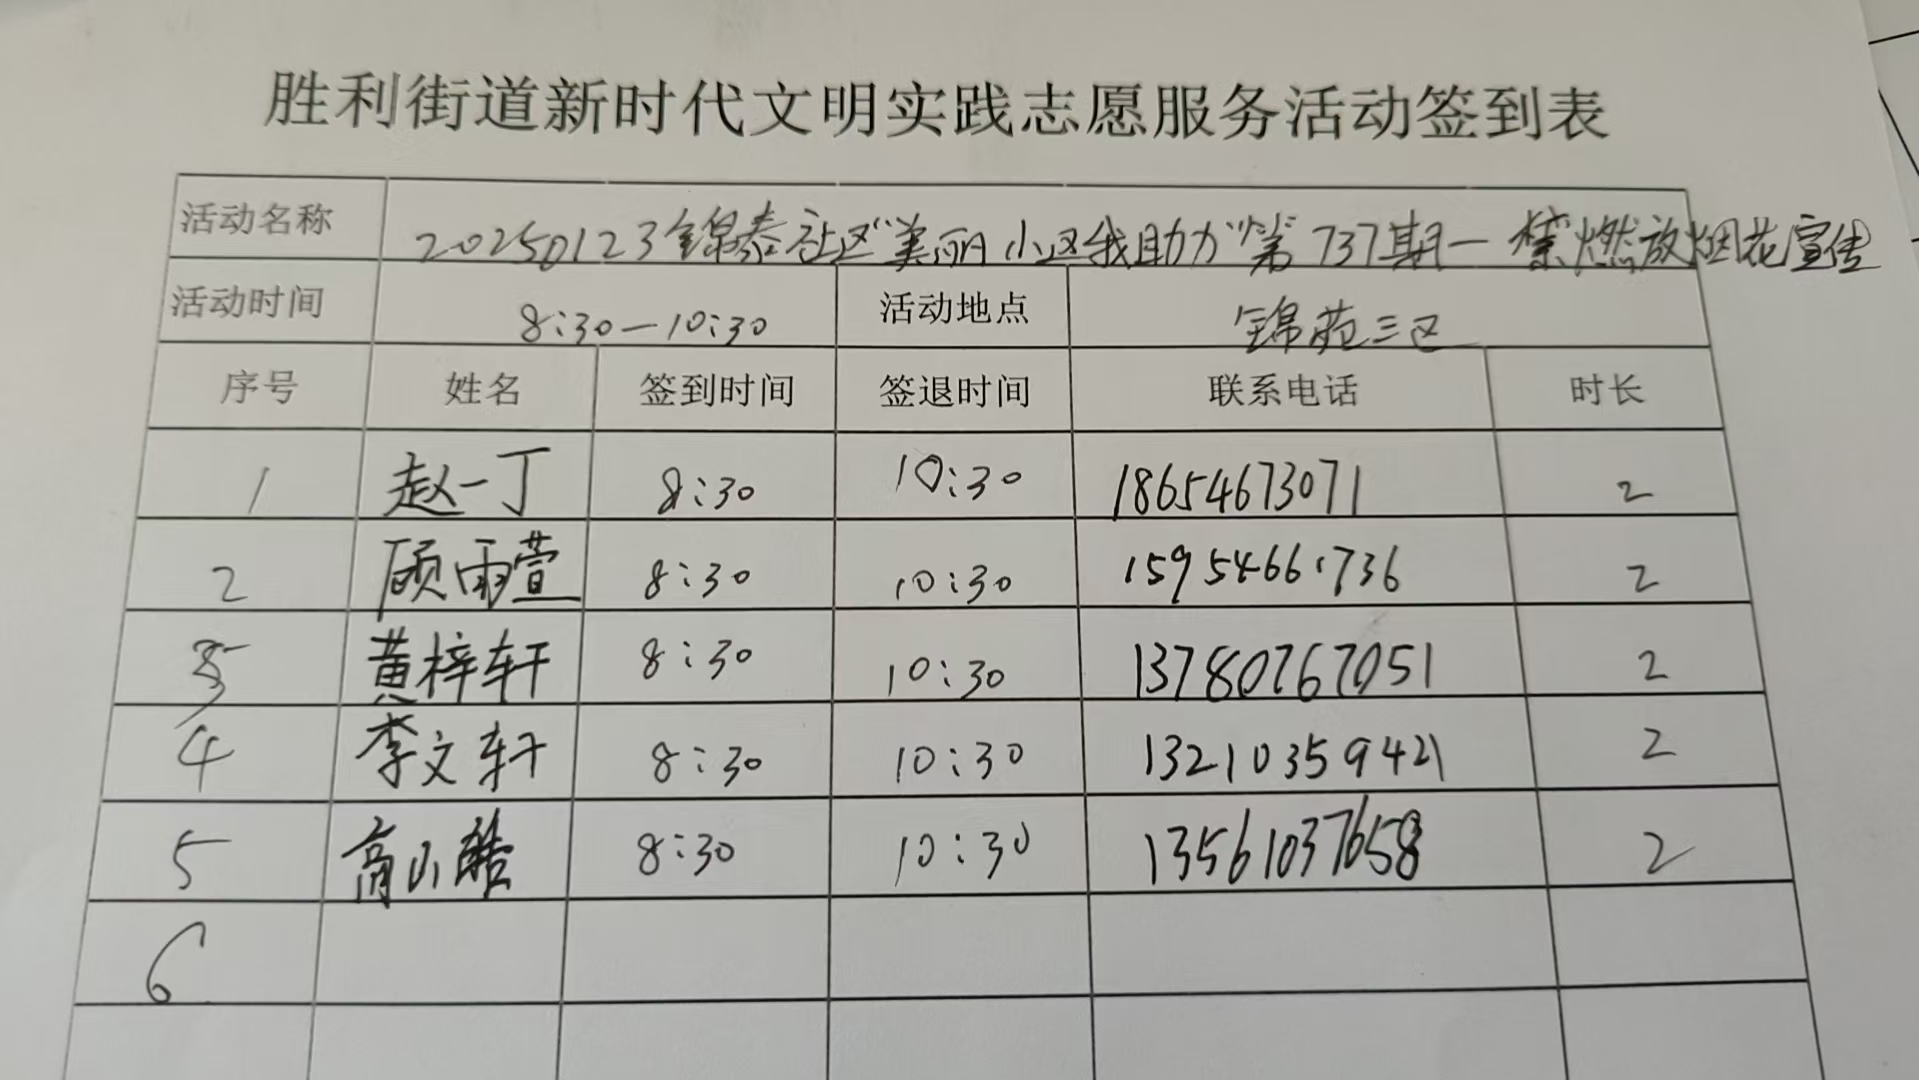 胜利街道新时代文明实践志愿服务活动签到表
活动名称 20250123锦泰社区"美丽小区我助力"第737期—禁燃放烟花宣传
活动时间 8:30—10:30 活动地点 锦苑三区
序号 姓名 签到时间 签退时间 联系电话 时长
1 赵一丁 8:30 10:30 18654673071 2
2 顾雨萱 8:30 10:30 15954661736 2
3 黄梓轩 8:30 10:30 13780767051 2
4 李文轩 8:30 10:30 13210359421 2
5 高小 8:30 10:30 13561037658 2
6